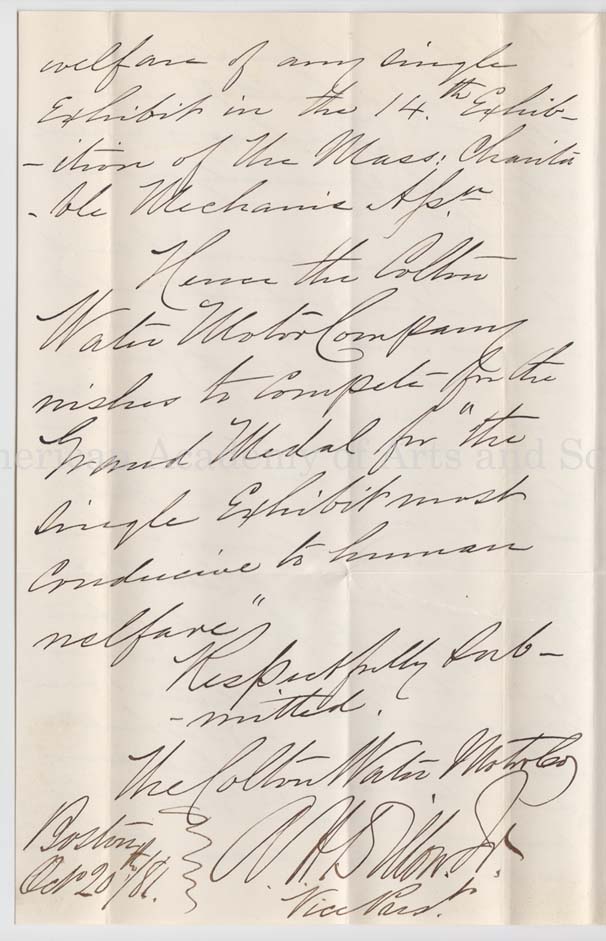 welfare of any single
Exhibit in the 14.th Exhib-
-ition of the Mass: Charita
-ble Mechanic Assn
Hence the Colton
Water Motor Company
wishes to compete for the
Grand Medal for "the
single Exhibit most
conducive to human
welfare"
Respectfully sub-
-mitted.
The Colton Water Motor Co
Boston
Oct 20th/81.
Vice Prest.
American Academy of Arts and Sc